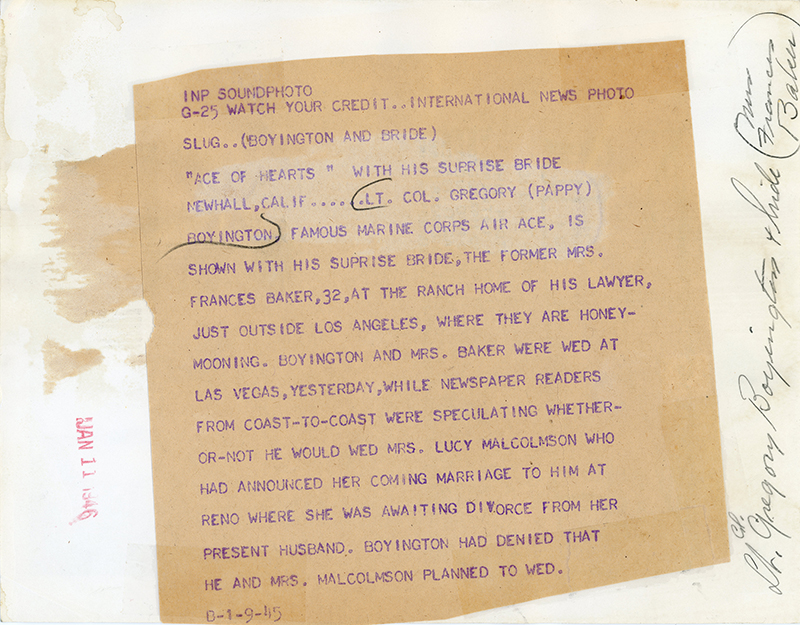 INP SOUNDPHOTO
G-25 WATCH YOUR CREDIT..INTERNATIONAL NEWS PHOTO
SLUG..(BOYINGTON AND BRIDE)
"ACE OF HEARTS " WITH HIS SUPRISE BRIDE
NEWHALL,CALIF......LT. COL. GREGORY (PAPPY)
BOYINGTON, FAMOUS MARINE CORPS AIR ACE, IS
SHOWN WITH HIS SUPRISE BRIDE,THE FORMER MRS.
FRANCES BAKER,32,AT THE RANCH HOME OF HIS LAWYER,
JUST OUTSIDE LOS ANGELES, WHERE THEY ARE HONEY-
MOONING. BOYINGTON AND MRS. BAKER WERE WED AT
LAS VEGAS,YESTERDAY,WHILE NEWSPAPER READERS
FROM COAST-TO-COAST WERE SPECULATING WHETHER-
OR-NOT HE WOULD WED MRS. LUCY MALCOLMSON WHO
HAD ANNOUNCED HER COMING MARRIAGE TO HIM AT
RENO WHERE SHE WAS AWAITING DIVORCE FROM HER
PRESENT HUSBAND. BOYINGTON HAD DENIED THAT
HE AND MRS. MALCOLMSON PLANNED TO WED.
B-1-9-45
JAN 11 1946
Lt. Gregory Boyington & bride (Mrs
Frances
Baker)